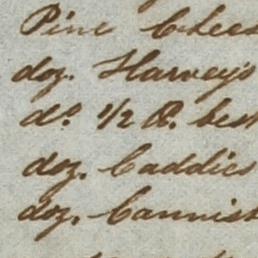 Pine Chees
doz. Harvey's
do. 1/2 Q. best
doz. Caddies
doz. Cannist